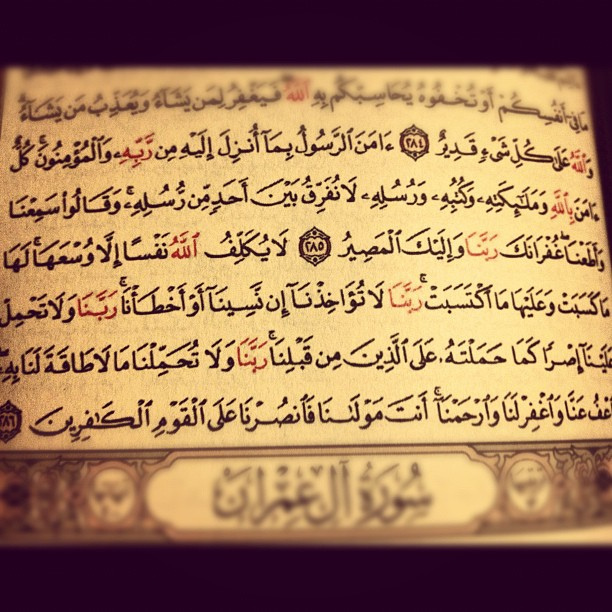 مَا فِىٓ أَنفُسِكُمْ أَوْ تُخْفُوهُ يُحَاسِبْكُم بِهِ ٱللَّهُ فَيَغْفِرُ لِمَن يَشَآءُ وَيُعَذِّبُ مَن يَشَآءُ
وَٱللَّهُ عَلَىٰ كُلِّ شَىْءٍ قَدِيرٌ ٢٨٤ ءَامَنَ ٱلرَّسُولُ بِمَآ أُنزِلَ إِلَيْهِ مِن رَّبِّهِۦ وَٱلْمُؤْمِنُونَ ۚ كُلٌّ
ءَامَنَ بِٱللَّهِ وَمَلَـٰٓئِكَتِهِۦ وَكُتُبِهِۦ وَرُسُلِهِۦ لَا نُفَرِّقُ بَيْنَ أَحَدٍ مِّن رُّسُلِهِۦ ۚ وَقَالُوا۟ سَمِعْنَا
وَأَطَعْنَا ۖ غُفْرَانَكَ رَبَّنَا وَإِلَيْكَ ٱلْمَصِيرُ ٢٨٥ لَا يُكَلِّفُ ٱللَّهُ نَفْسًا إِلَّا وُسْعَهَا ۚ لَهَا
مَا كَسَبَتْ وَعَلَيْهَا مَا ٱكْتَسَبَتْ ۗ رَبَّنَا لَا تُؤَاخِذْنَآ إِن نَّسِينَآ أَوْ أَخْطَأْنَا ۚ رَبَّنَا وَلَا تَحْمِلْ
عَلَيْنَآ إِصْرًا كَمَا حَمَلْتَهُۥ عَلَى ٱلَّذِينَ مِن قَبْلِنَا ۚ رَبَّنَا وَلَا تُحَمِّلْنَا مَا لَا طَاقَةَ لَنَا بِهِۦ ۖ
وَٱعْفُ عَنَّا وَٱغْفِرْ لَنَا وَٱرْحَمْنَآ ۚ أَنتَ مَوْلَىٰنَا فَٱنصُرْنَا عَلَى ٱلْقَوْمِ ٱلْكَـٰفِرِينَ ٢٨٦
سُورَةُ آلِ عِمْرَانَ